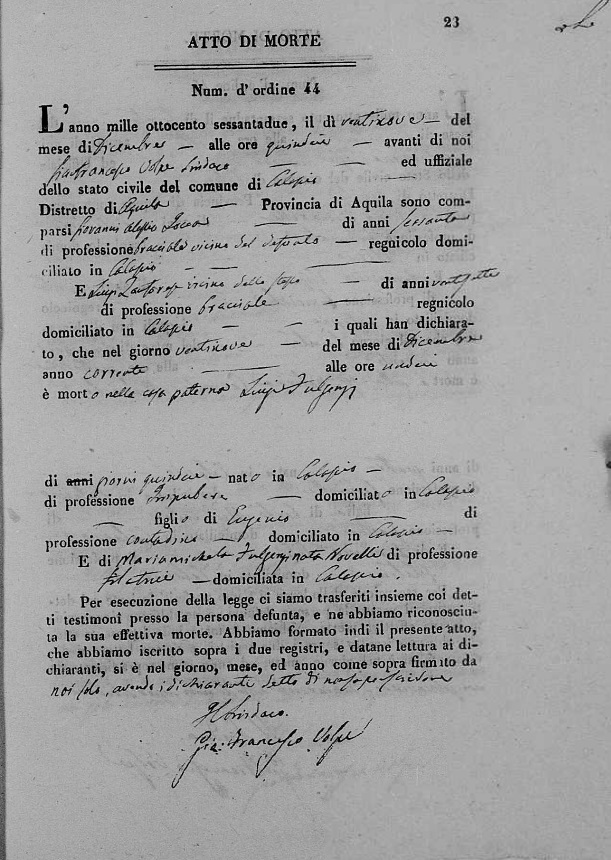 23
ATTO DI MORTE
Num. d' ordine 44
L' anno mille ottocento sessantadue, il dì ventinove del
mese di Dicembre alle ore quindici avanti di noi
Gianfrancesco Volpe Sindaco ed uffiziale
dello stato civile del comune di Calascio
Distretto di Aquila Provincia di Aquila sono com-
parsi Giovanni di anni sessanta
di professione bracciale vicino del defunto regnicolo domi-
ciliato in Calascio
E Luigi vicino dello stesso di anni
di professione bracciale regnicolo
domiciliato in Calascio i quali han dichiara-
to, che nel giorno ventinove del mese di Dicembre
anno corrente alle ore undici
è morto nella casa paterna Luigi Fulgenzj
di anni giorni quindici nato in Calascio
di professione Impubere domiciliato in Calascio
figlio di Eugenio di
professione contadino domiciliato in Calascio
E di Mariamichela Fulgenzj nata Novelli di professione
filatrice domiciliata in Calascio.
Per esecuzione della legge ci siamo trasferiti insieme coi det-
ti testimonî presso la persona defunta, e ne abbiamo riconosciu-
ta la sua effettiva morte. Abbiamo formato indi il presente atto,
che abbiamo iscritto sopra i due registri, e datane lettura ai di-
chiaranti, si è nel giorno, mese, ed anno come sopra firmato da
noi solo, avendo i dichiaranti detto di non sapere scrivere
Il Sindaco.
Gia: Francesco Volpe